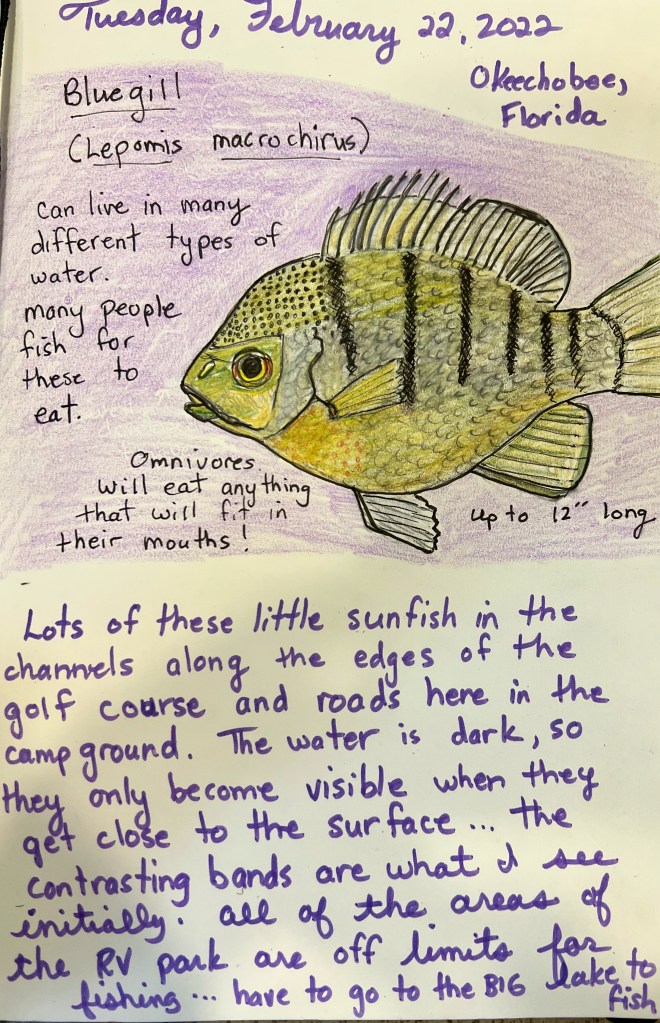 Tuesday, February 22, 2022
Okeechobee,
Florida
Bluegill
(Lepomis macrochirus)
can live in many
different types of
water.
many people
fish for
these to
eat.
Omnivores
will eat anything
that will fit in
their mouths!
up to 12" long
Lots of these little sunfish in the
channels along the edges of the
golf course and roads here in the
campground. The water is dark, so
they only become visible when they
get close to the surface... the
contrasting bands are what I see
initially. all of the areas of
the RV park are off limits for
fishing... have to go to the BIG lake to
fish